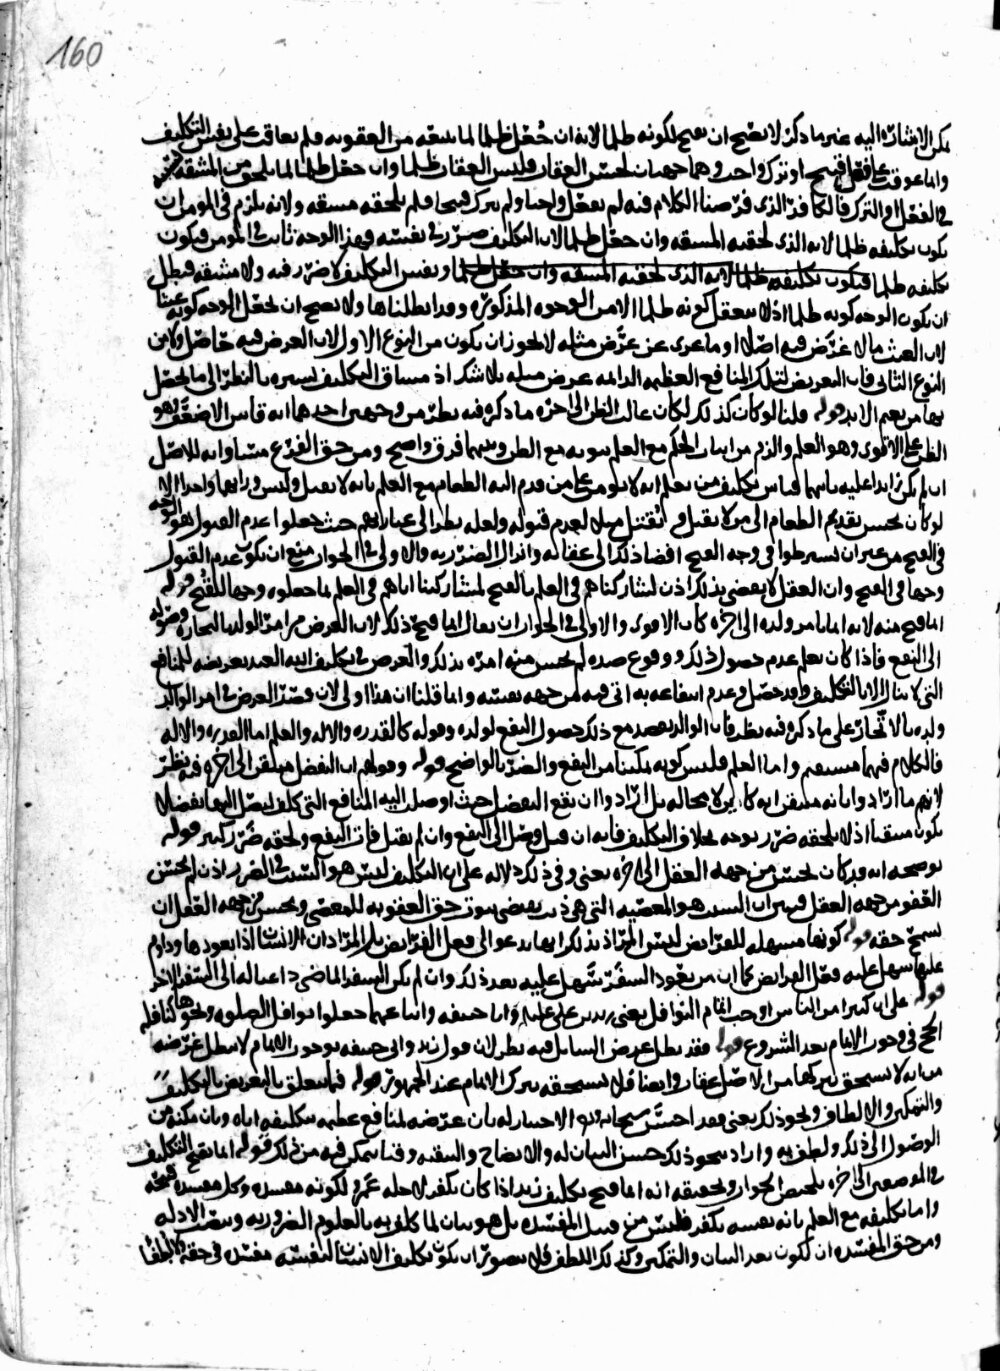 160
يمكن الاشارة اليه غير ما ذكر لا يصح ان يقبح لكونه ظلما لانه ان جُعل ظلما لما يتبعه من العقوبه فلم يعاقب على نفس التكليف
وانما عوقب على فعل قبيح او ترك واجب وهما جهتان لحسن العقاب فليس العقاب ظلما وان جعل ظلما لما يلحق من المشقه
في الفعل او الترك فالكافر الذي فرضنا الكلام فيه لم يفعل واجبا ولم يترك قبيحا فلم يلحقه مشقه ولانه يلزم في المومن ان
يكون تكليفه ظلما لانه الذي لحقته المشقه وان جعل ظلما لان التكليف ضرر في نفسه فهذا الوجه ثابت في المومن فيكون
تكليفه ظلما فيكون تكليفه ظلما لانه الذي لحقته المشقه وان جعل ظلما ونفس التكليف لا ضرر فيه ولا مشقه فبطل
ان يكون الوجه كونه ظلما اذ لا يعقل كونه ظلما الا من الوجوه المذكوره وقد ابطلناها ولا يصح ان يجعل الوجه كونه عبثا
لان العبث ما لا غرض فيه اصلا او ما عرى عن غرض مثله لا يجوز ان يكون من النوع الاول لان الغرض فيه حاصل ولا من
النوع الثاني فان التعريض لتلك المنافع العظيمه الدايمه غرض مثله بلا شك اذ مشاق التكليف يسيره بالنظر الى ما يحصل
بها من نعيم الابد قوله قلنا لو كان كذلك لكان غالب الظن الى اخره ما ذكره فيه نظر من وجهين احدهما انه قاس الاضعف وهو
الظن على الاقوى وهو العلم والزم من اثبات الحكم مع العلم ثبوته مع الظن وبينهما فرق واضح ومن حق الفرع مساواته للاصل
ان لم يكن زايدا عليه ثانيهما قياس تكليف من يعلم انه لا يومن على من قدم اليه الطعام مع العلم بانه لا يقبل وليس ورابهما واحدا الا
لو كان يحسن تقديم الطعام الى من لا يقبل ثم يقتل مثلا لعدم قبوله ولعله نظر الى عبارتهم حيث جعلوا عدم القبول هو الوجه
في القبح من غير ان يشرطوا في وجه القبح افضا ذلك الى عقابه وانزال الضرر به والاولى في الجواب منع ان يكون عدم القبول
وجها في القبح وان العقل لا يقضي بذلك اذن لشاركناهم في العلم بالقبح لمشاركتنا اياهم في العلم بما جعلوه وجها للقبح قوله
انما قبح منه لانه انما يامر ولده الى اخره كان الاقوى والاولى في الجواب ان يقال انما قبح ذلك لان الغرض من امر الولد بالتجاره وصوله
الى النفع فاذا كان يعلم عدم حصول ذلك ووقوع ضده لم يحسن منه امره بذلك والغرض في تكليف الله العبد تعريضه للمنافع
التي لا تنال الا بالتكليف وقد حصل وعدم انتفاعه به اتى فيه من جهه نفسه وانما قلنا ان هذا اولى لان قصر الغرض في امر الوالد
ولده بالاتجار على ما ذكره فيه نظر فان الوالد يقصد مع ذلك حصول النفع لولده وقوله كالقدره والاله والعلم اما القدره والاله
فالكلام فيهما مستقيم واما العلم فليس كونه تمكينا من النفع والضر بالواضح قوله وقولهم ان التفضل متيقن الى اخره فيه نظر
لانهم ما ارادوا بانه متيقن انه كاين لا محاله بل ارادوا ان نفع التفضل حيث اوصل اليه المنافع التي كلف ليصل اليها تفضلا
يكون متيقنا اذ لا يلحقه ضرر بوجه بخلاف التكليف فانه ان قبل وصل الى النفع وان لم يقبل فات النفع ولحقه ضرر كبير قوله
يوضحه انه قد كان يحسن من جهه العقل الى اخره يعني وفي ذلك دلاله على ان التكليف ليس هو السبب في الضرر اذن لم يحسن
العفو من جهه العقل فبين ان السبب هو المعصيه التي هو ذنب يقتضي ثبوت حق العقوبه للمعصي ويحسن من جهه العقل ان
يسمح حقه قوله كونها مسهله للفرايض ليس المراد بذلك انها تدعو الى فعل الفرايض بل المراد ان الانسان اذا تعودها وداوم
عليها سهل عليه فعل الفرايض كما ان من تعود السفر سهل عليه بعد ذلك وان لم يكن السفر الماضي داعيا له الى السفر الاخر
قوله على ان كثيرا من الناس اوجب اتمام النوافل يعني زيد بن علي عليه وابا حنيفه واتباعهما جعلوا نوافل الصلوه ونحوها كنافله
الحج في وجوب الاتمام بعد الشروع قوله فقد بطل غرض السايل فيه نظر لان قول زيد وابي حنيفه بوجوب الاتمام لا يبطل غرضه
من انه لا يستحق بتركها من الاصل عقاب وايضا فلا يستحقه بترك الاتمام عند الجمهور قوله فيما يتعلق بالتعريض بالتكليف
والتمكين والالطاف ونحو ذلك يعني فقد احسن سبحانه الاختيار له بان عرضه لمنافع عظيمه بتكليفه اياه وبان مكنه من
الوصول الى ذلك ولطف به واراد بنحو ذلك حسن البيان له والايضاح والتبقيه وقتا يتمكن فيه من ذلك قوله انما يقبح التكليف
في الموضعين الى اخره تلخيص الجواب وتحقيقه انه انما قبح تكليف زيد اذا كان يكفر لاجله عمرو لكونه مفسده وكل مفسده قبيحه
واما تكليفه مع العلم بانه نفسه يكفر فليس من قبيل المفسده بل هو بيان لما كلف به بالعلوم الضروريه ونصب الادله
ومن حق المفسده ان تكون بعد البيان والتمكين وكذلك اللطف فلا يتصور ان يكون تكليف الانسان لنفسه مفسده في حقه ولا لطفا